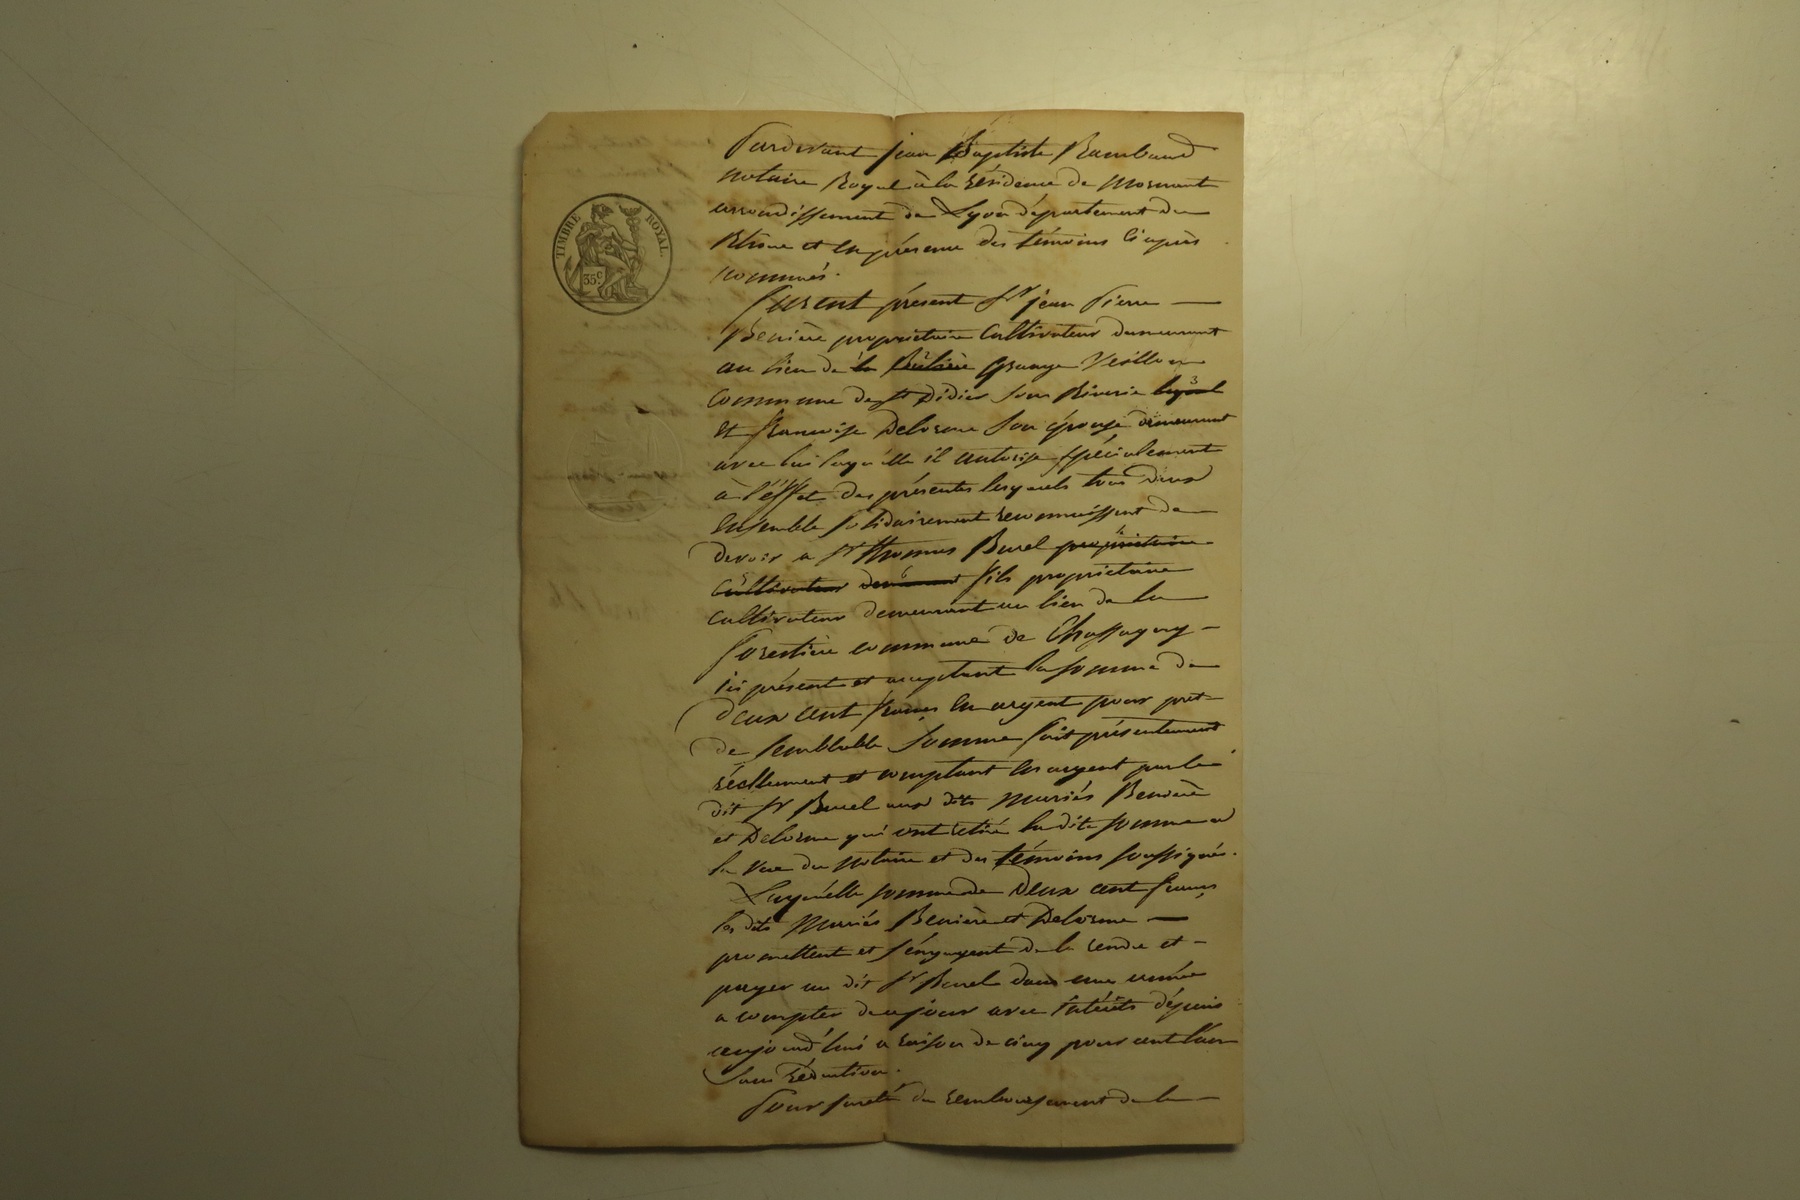 TIMBRE ROYAL
35c
Pardevant jean Baptiste Rambaud
notaire Royal à la résidence de Mornant
arrondissement de Lyon département du
Rhône et en présence des témoins ci après
nommés.
Furent présent Sr jean Pierre
Benière propriétaire Cultivateur demeurant
au lieu de la Grange
Commune de St Didier Sous Riverie
et francoise Delorme Son épouse demeurant
avec lui laquélle il autorise spécialement
à l'éffet des présentes lesquels tous deux
Ensemble Solidairement reconnaissent de
devoir a Sr thomas Burel propriétaire
Cultivateur demeurant fils propriétaire
Cultivateur demeurant au lieu de la
commune de Chassagny
ici présent et acceptant la somme de
deux cent francs en argent pour pret
de semblable Somme fait présentement
réellement et comptant en argent par le
dit Sr Burel aux dits mariés Benière
et Delorme qui ont retiré la dite somme a
la vue du notaire et des témoins soussignés.
Laquélle somme de Deux cent francs
les dits mariés Benière et Delorme
promettent et s'éngagent de la rendre et
payer au dit Sr Burel dans une année
a compter de ce jour avec intérêts dépuis
aujourd'hui a raison de cinq pour cent l'an
Sans réduction.
Pour sureté du remboursement de la